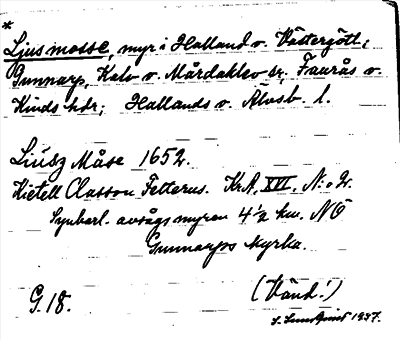 *
Ljusmosse, myr i Halland o. Västergötl;
Gunnarp, Kalv o. Mårdaklev sr, Faurås o.
Kinds hdr; Hallands o. Älvsb. l.
Liüsz Måse 1652.
Kietell Classon Felterus. KrA, XVI, N:o 2.
Synbarl. avsågs myren 4 1/2 km. NÖ
Gunnarps kyrka.
G. 18.
(Vänd!)
S. Lundquist 1937.